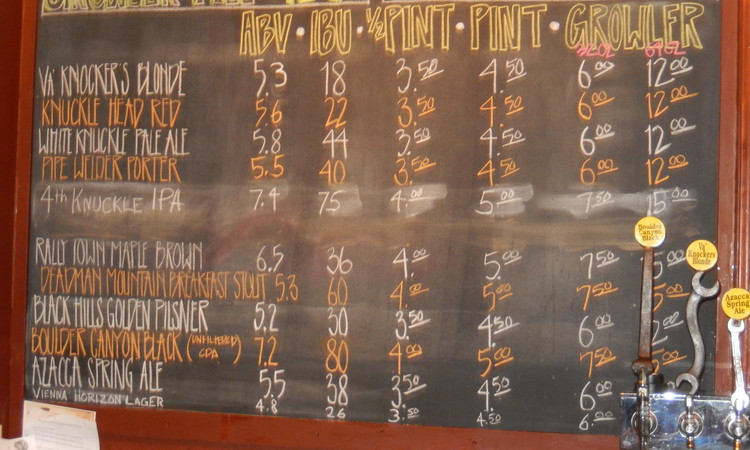 ABV • IBU • ½ PINT • PINT • GROWLER
32OZ 64OZ
VA' KNOCKER'S BLONDE 5.3 18 3.50 4.50 6.00 12.00
KNUCKLE HEAD RED 5.6 22 3.50 4.50 6.00 12.00
WHITE KNUCKLE PALE ALE 5.8 44 3.50 4.50 6.00 12.00
PIPE WELDER PORTER 5.5 40 3.50 4.50 6.00 12.00
4th KNUCKLE IPA 7.4 75 4.00 5.00 7.50 15.00
RALLY TOWN MAPLE BROWN 6.5 36 4.00 5.00 7.50 5.00
DEADMAN MOUNTAIN BREAKFAST STOUT 5.3 60 4.00 5.00 7.50 5.00
BLACK HILLS GOLDEN PILSNER 5.2 30 3.50 4.50 6.00 2.00
BOULDER CANYON BLACK (UNFILTERED CDA) 7.2 80 4.00 5.00 7.50 5.00
AZACCA SPRING ALE 5.5 38 3.50 4.50 6.00
VIENNA HORIZON LAGER 4.8 26 3.50 4.50 6.00
Boulder
Canyon
Black
Va'
Knockers
Blonde
Azacca
Spring
Ale